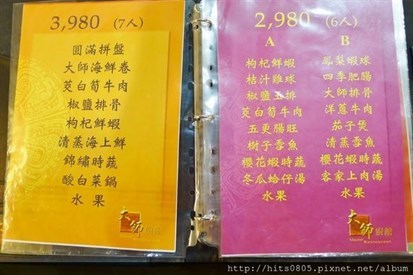 3,980 (7人)
圓滿拼盤
大師海鮮卷
茭白筍牛肉
椒鹽排骨
枸杞鮮蝦
清蒸海上鮮
錦繡時蔬
酸白菜鍋
水果
大師
2,980 (6人)
A
枸杞鮮蝦
桔汁雞球
椒鹽
茭白筍牛肉
五更腸旺
樹子雪魚
櫻花蝦時蔬
冬瓜蛤仔湯
水果
B
蝦球
四季肥腸
大師排骨
洋蔥牛肉
茄子煲
清蒸雪魚
櫻花蝦時蔬
客家上肉湯
水果
大師
http://hita0805.pixnet.net/album